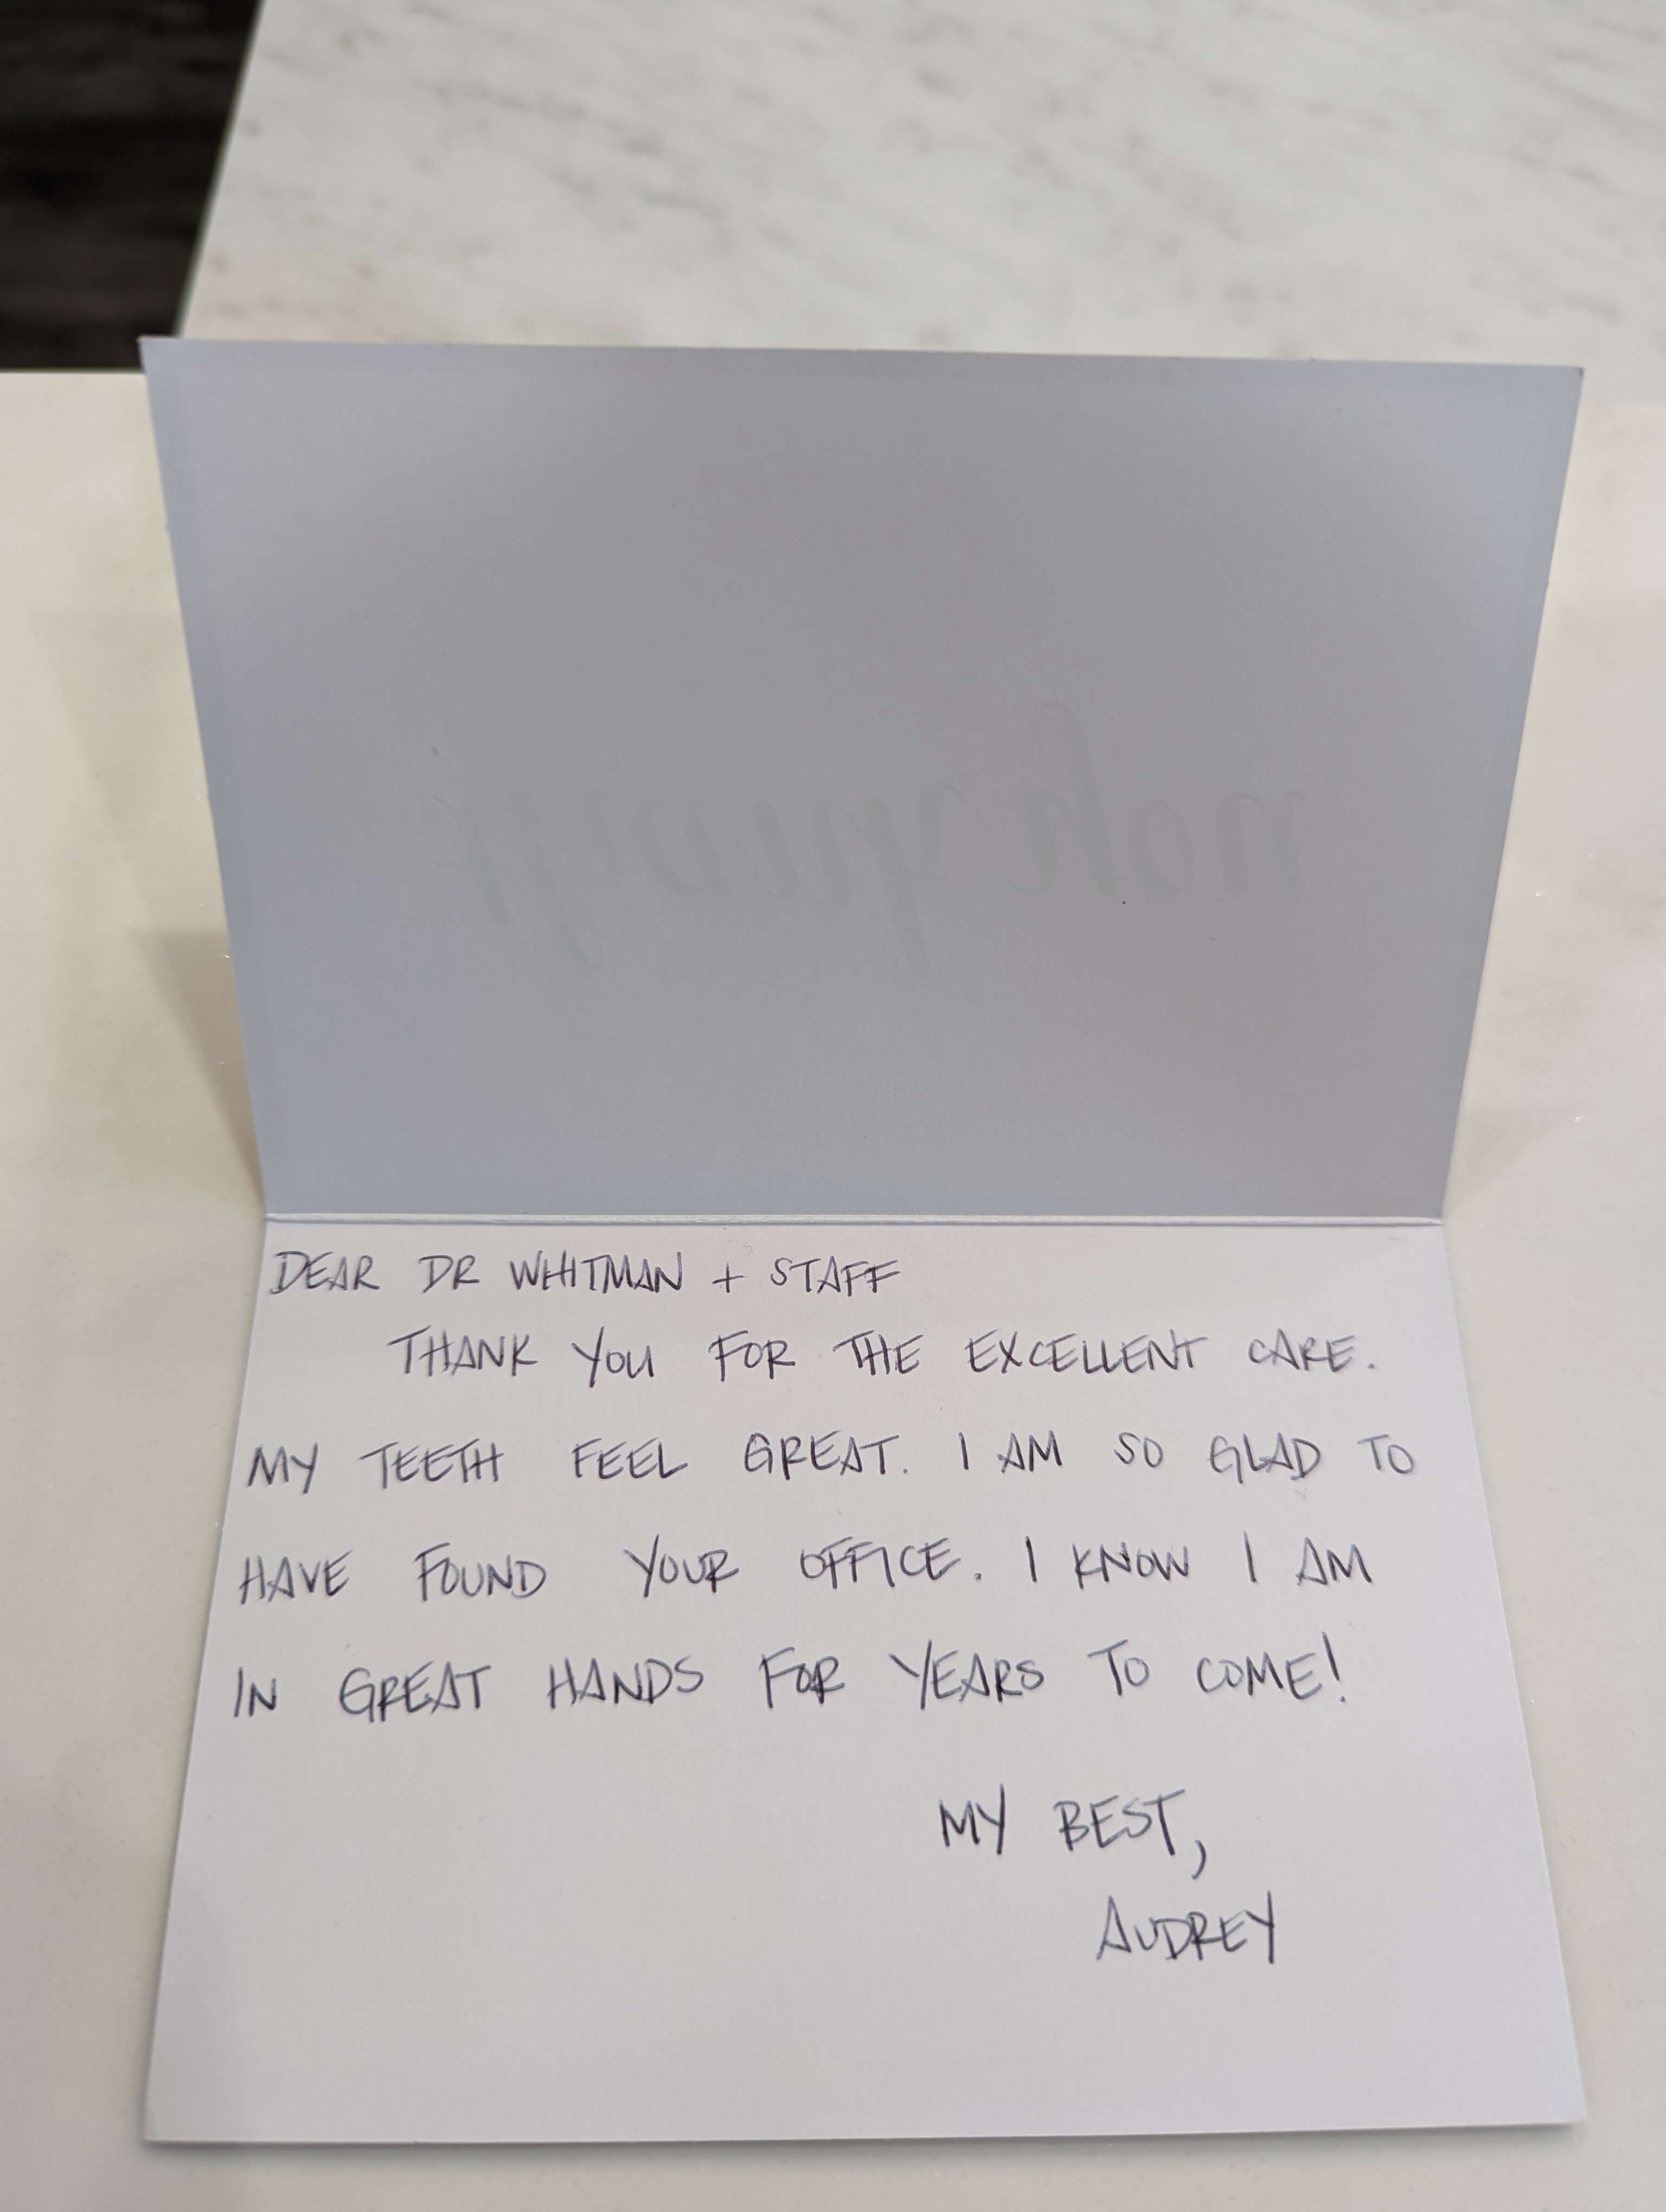 thank you
DEAR DR WHITMAN + STAFF
THANK YOU FOR THE EXCELLENT CARE.
MY TEETH FEEL GREAT. I AM SO GLAD TO
HAVE FOUND YOUR OFFICE. I KNOW I AM
IN GREAT HANDS FOR YEARS TO COME!
MY BEST,
AUDREY